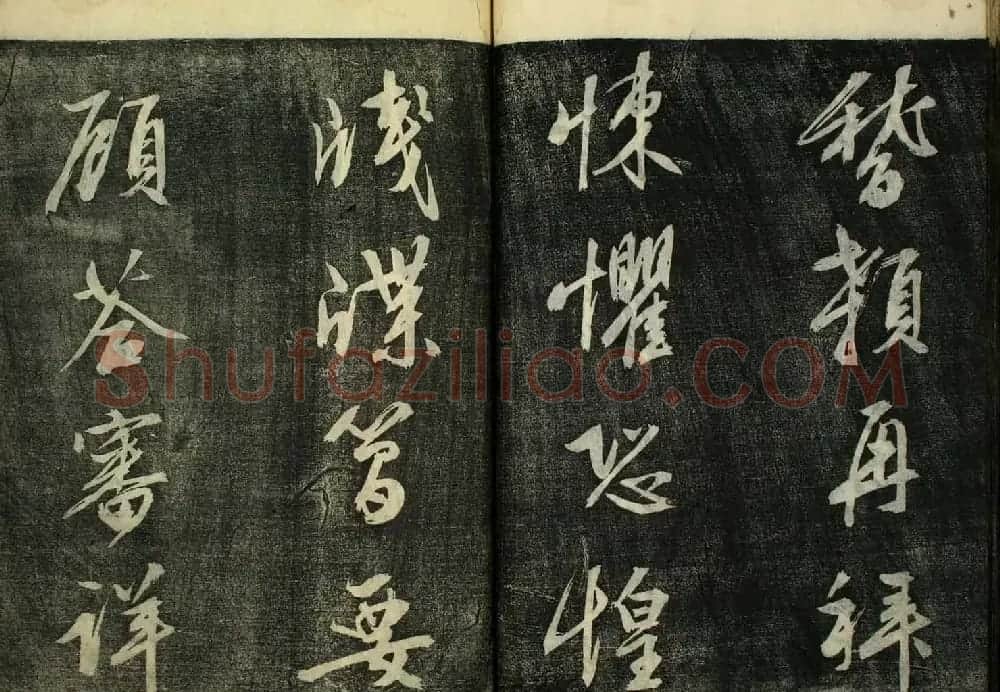 稽顙再拜
悚懼恐惶
牋牒簡要
顧答審詳
Shufaziliao.COM